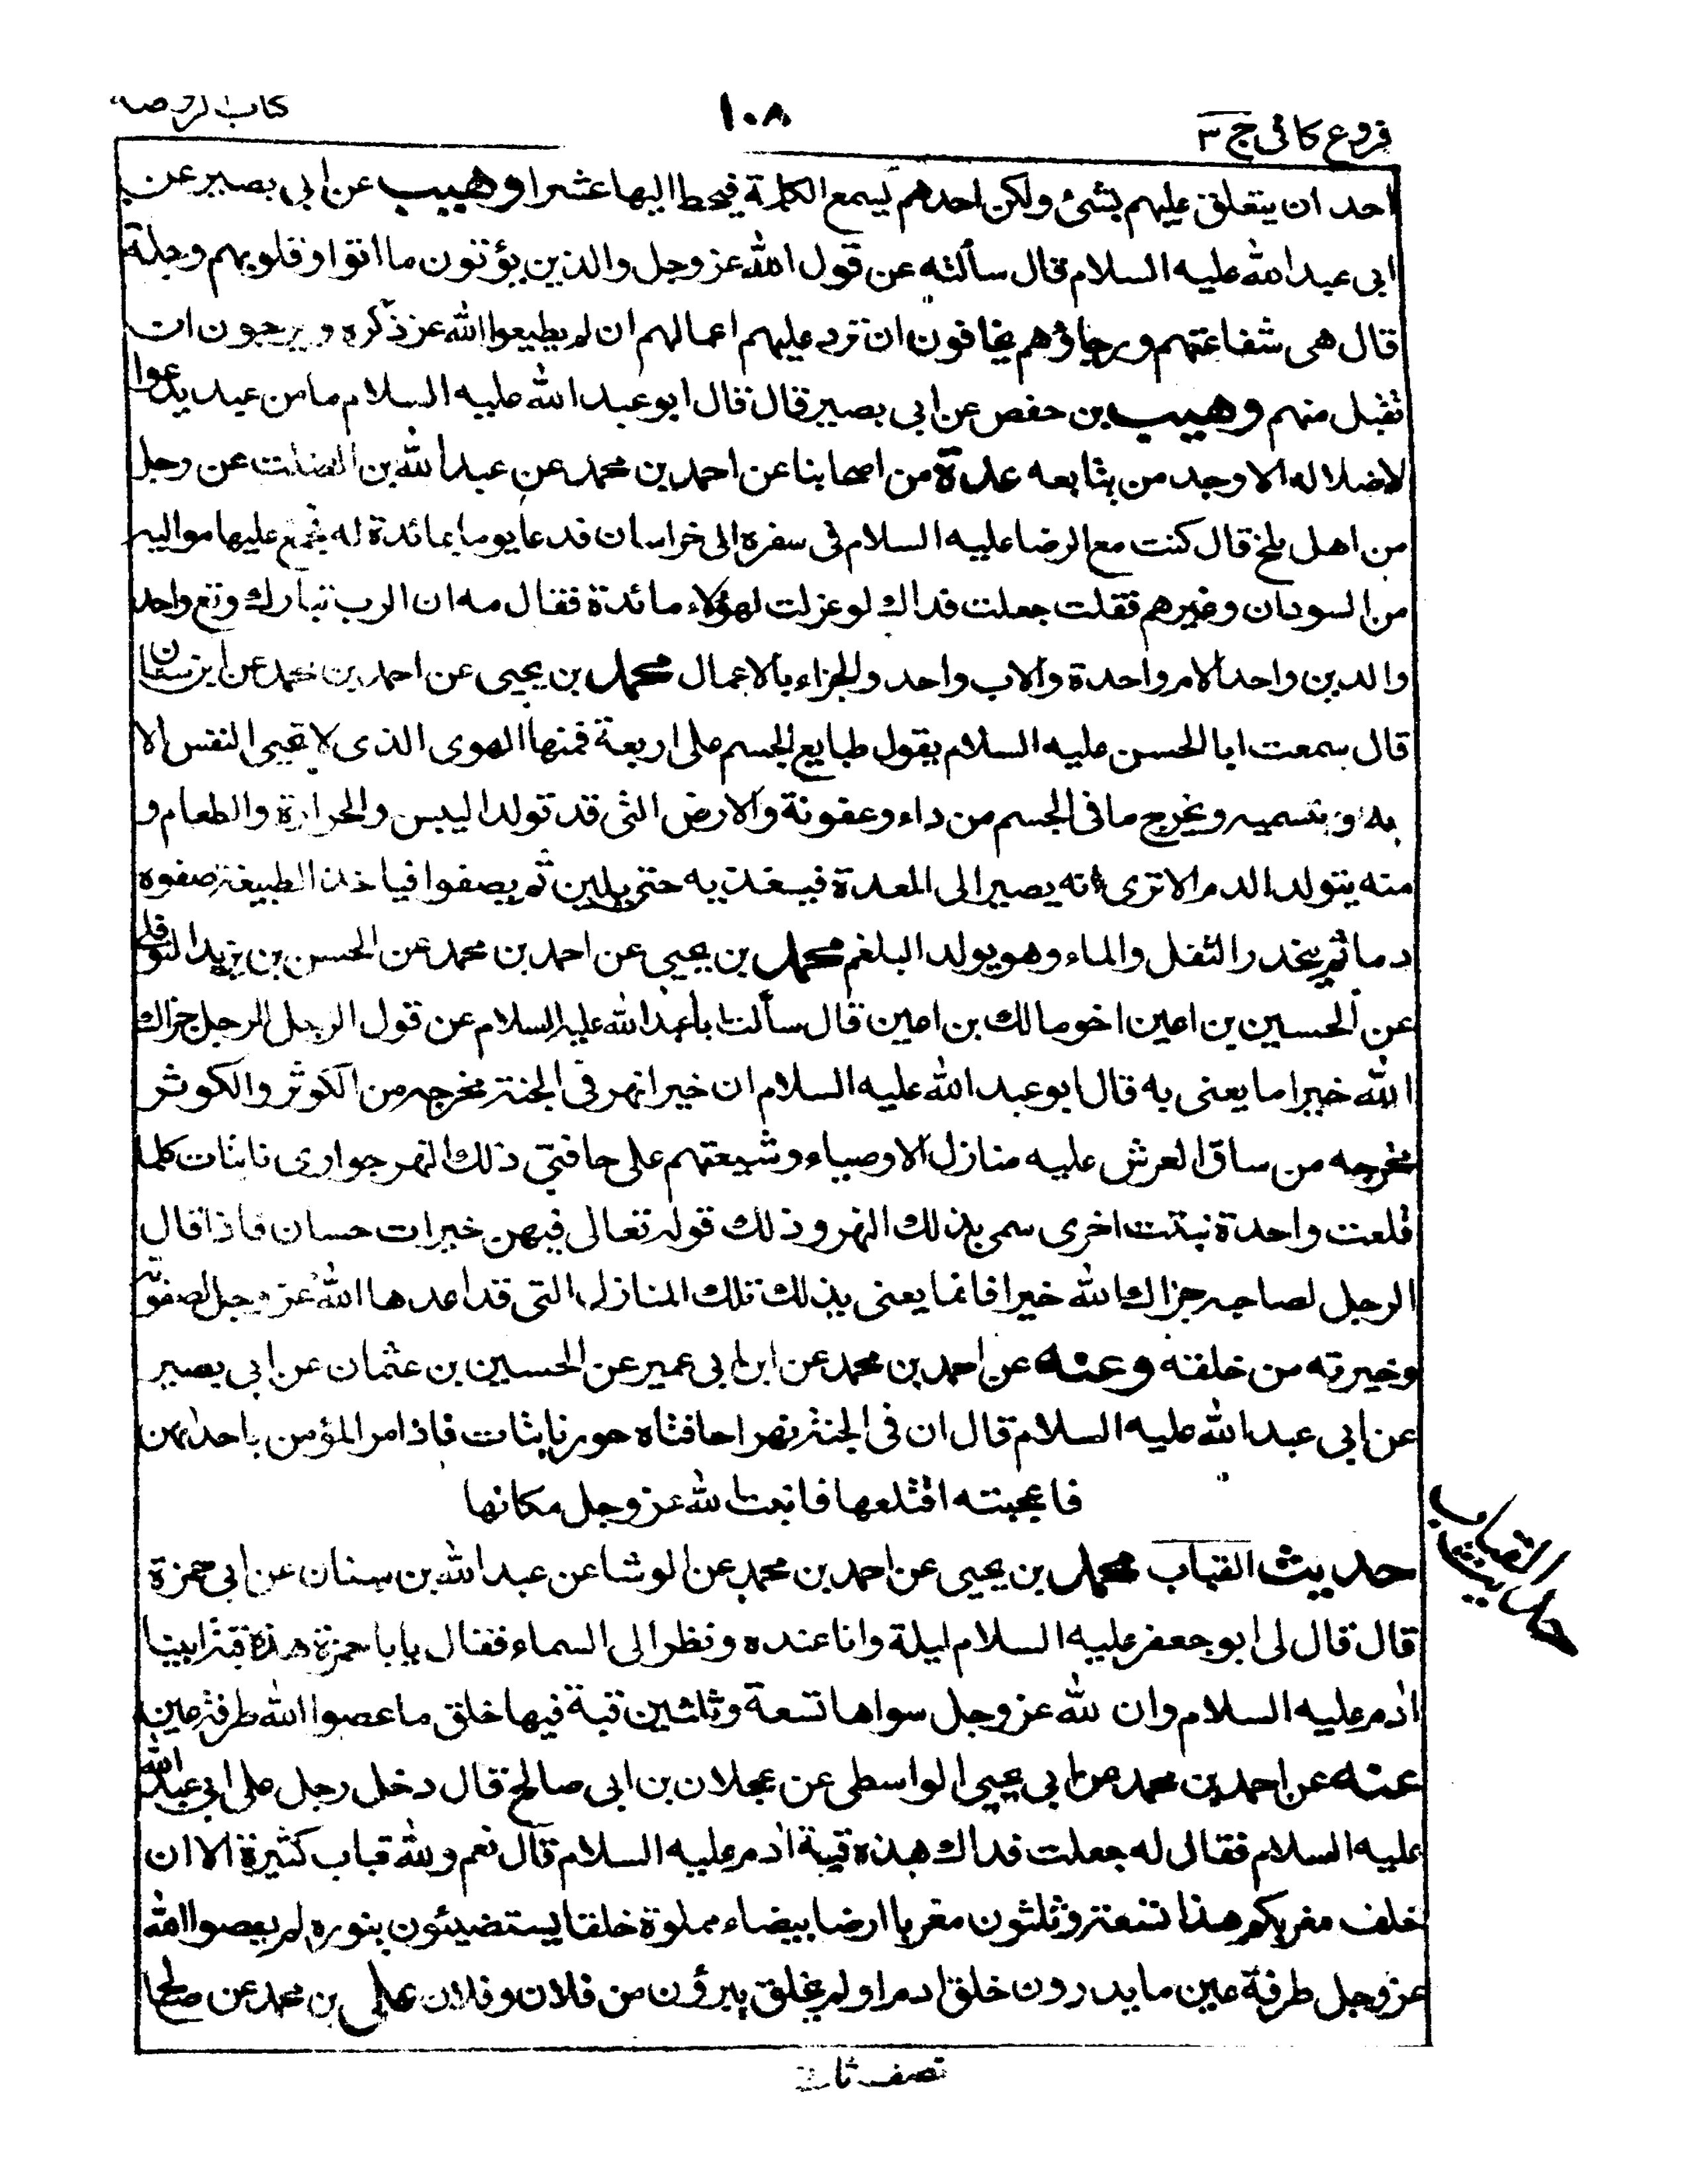 فروع كافى ج ٣
١٠٨
كتاب الروضة
احد ان يتعلق عليهم بشئ ولكن احدهم يسمع الكلمة فيحط اليها عشرا وهيب عن ابى بصير عن
ابى عبد الله عليه السلام قال سألته عن قول الله عز وجل والذين يؤتون ما اتوا وقلوبهم وجلة
قال هى شفاعتهم ورجاؤهم يخافون ان ترد عليهم اعمالهم ان لم يطيعوا الله عز ذكره ويرجون ان
تقبل منهم وهيب بن حفص عن ابى بصير قال قال ابو عبد الله عليه السلام ما من عبد يدعوا
لاضلاله الا وجد من يتابعه عدة من اصحابنا عن احمد بن محمد عن عبد الله بن الصلت عن رجل
من اهل بلخ قال كنت مع الرضا عليه السلام فى سفره الى خراسان فدعا يوما بمائدة له فجمع عليها مواليه
من السودان وغيرهم فقلت جعلت فداك لو عزلت لهؤلاء مائدة فقال مه ان الرب تبارك وتع واحد
والدين واحد الام واحدة والاب واحد والجزاء بالاعمال محمد بن يحيى عن احمد بن محمد عن ابن سنان
قال سمعت ابا الحسن عليه السلام يقول طبايع الجسم على اربعة فمنها الهوى الذى لا تحيى النفس الا
به وبنسميه ويخرج ما فى الجسم من داء وعفونة والارض التى قد تولد اليبس والحرارة والطعام و
منه يتولد الدم الا ترى انه يصير الى المعدة فيغذيه حتى يلين ثم يصفوا فياخذ الطبيعة صفوه
دما ثم ينحدر الثفل والماء وهو يولد البلغم محمد بن يحيى عن احمد بن محمد عن الحسن بن يزيد النوفلى
عن الحسين بن اعين اخو مالك بن اعين قال سألت ابا عبد الله عليه السلام عن قول الرجل للرجل جزاك
الله خيرا ما يعنى به قال ابو عبد الله عليه السلام ان خيرا نهر فى الجنة مخرجه من الكوثر والكوثر
مخرجه من ساق العرش عليه منازل الاوصياء وشيعتهم على حافتى ذلك النهر جوارى نابتات كلما
قلعت واحدة نبتت اخرى سمى بذلك النهر وذلك قوله تعالى فيهن خيرات حسان فاذا قال
الرجل لصاحبه جزاك الله خيرا فانما يعنى بذلك تلك المنازل التى قد اعدها الله عز وجل لصفوته
وخيرته من خلقه وعنه عن احمد بن محمد عن ابن ابى عمير عن الحسين بن عثمان عن ابى بصير
عن ابى عبد الله عليه السلام قال ان فى الجنة نهرا حافتاه حور نابتات فاذا مر المؤمن باحديهن
فاعجبته اقتلعها فانبت الله عز وجل مكانها
حديث القباب
حديث القباب محمد بن يحيى عن احمد بن محمد عن الوشا عن عبد الله بن سنان عن ابى حمزة
قال قال لى ابو جعفر عليه السلام ليلة وانا عنده ونظر الى السماء فقال يا با حمزة هذه قبة ابينا
ادم عليه السلام وان لله عز وجل سواها تسعة وثلثين قبة فيها خلق ما عصوا الله طرفة عين
عنه عن احمد بن محمد عن ابى يحيى الواسطى عن عجلان بن ابى صالح قال دخل رجل على ابى عبد الله
عليه السلام فقال له جعلت فداك هذه قبة ادم عليه السلام قال نعم ولله قباب كثيرة الا ان
خلف مغربكم هذا تسعة وثلثون مغربا ارضا بيضاء مملوة خلقا يستضيئون بنوره لم يعصوا الله
عز وجل طرفة عين ما يدرون خلق ادم او لم يخلق يبرؤن من فلان وفلان على بن محمد عن صالح
نصف ثانى